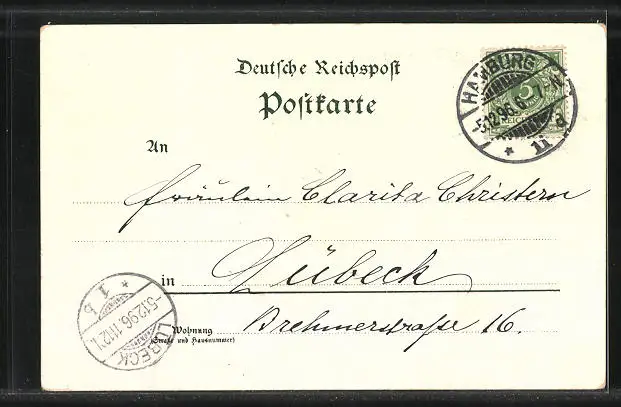 Deutsche Reichspost
Postkarte
HAMBURG
5.12.96. 6-7
* 11 a
An
Fräulein Clarita Christern
in Lübeck
Wohnung
(Straße und Hausnummer)
Brehmerstraße 16.
LÜBECK
-5.12.96. 11-12
* 1 b